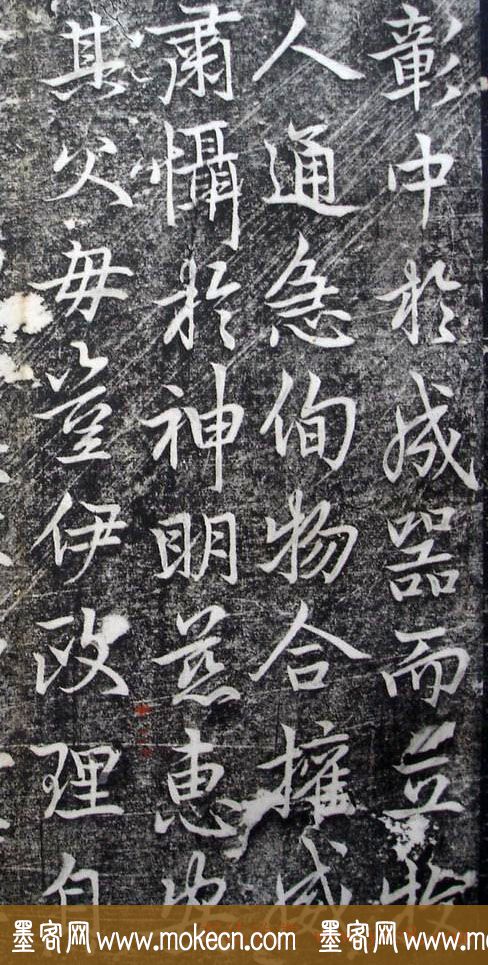 彰中於成器而立牧
人通急侚物合擁威
肅懾於神明慈惠
其父毋豈伊政理自
墨客网 www.mokecn.com 墨客网 www.mokecn.com